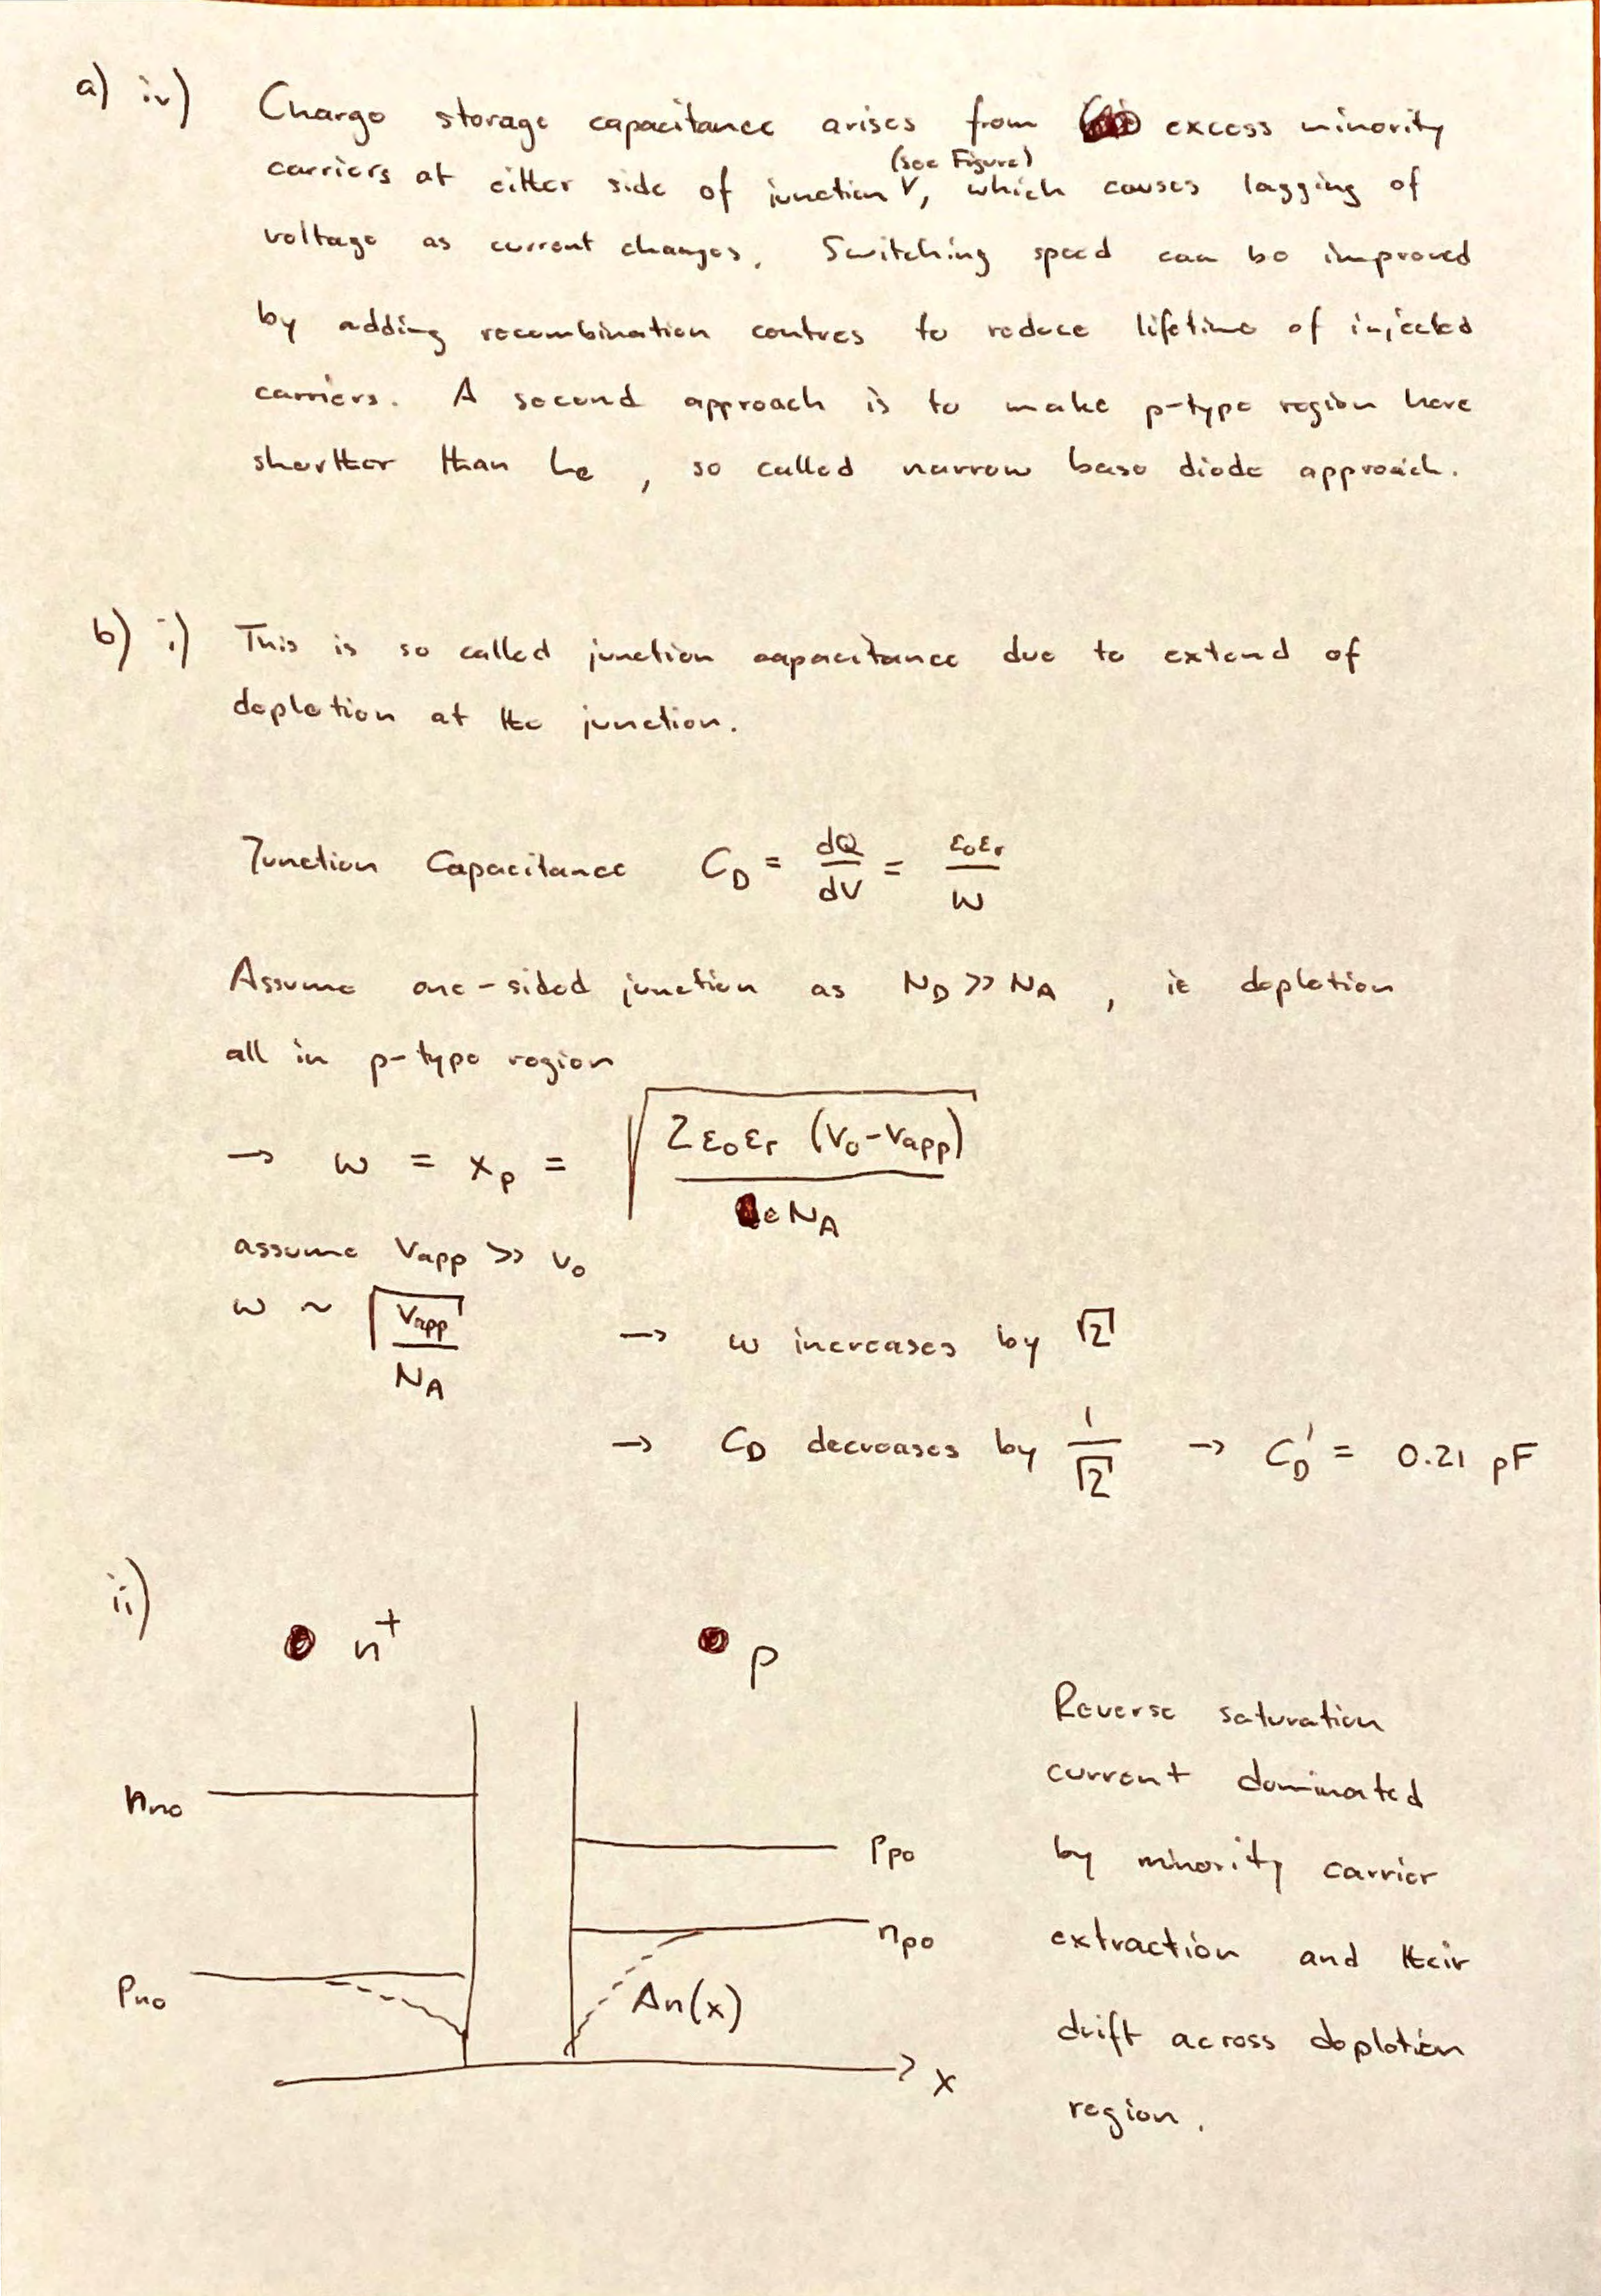 a) iv) Charge storage capacitance arises from excess minority
(see Figure)
carriers at either side of junction, which causes lagging of
voltage as current changes. Switching speed can be improved
by adding recombination centres to reduce lifetime of injected
carriers. A second approach is to make p-type region here
shortter than Le, so called narrow base diode approach.
b) i) This is so called junction capacitance due to extend of
depletion at the junction.
Junction Capacitance C_D = dQ/dV = ε₀εᵣ/W
Assume one-sided junction as N_D >> N_A, ie depletion
all in p-type region
→ w = x_p = √(2ε₀εᵣ (V₀-Vapp) / eN_A)
assume Vapp >> V₀
w ~ √(Vapp/N_A) → w increases by √2
→ C_D decreases by 1/√2 → C_D' = 0.21 pF
ii)
n⁺ p
Reverse saturation
current dominated
by minority carrier
extraction and their
drift across depletion
region.
n_no
p_po
n_po
p_no
Δn(x)
x